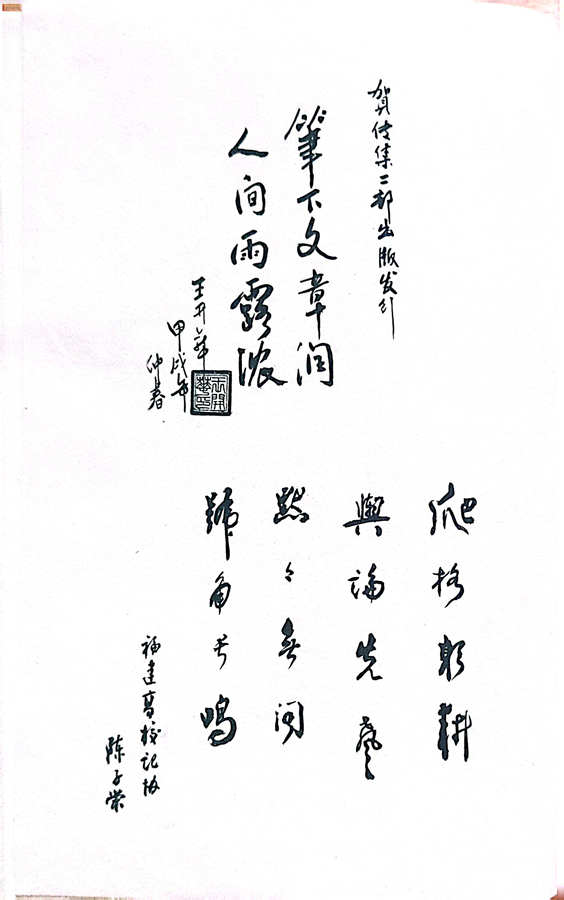 贺传集二部出版发行
筆下文章润
人间雨露浓
王开華
甲戌年
仲春
王開華印
爬格躬耕
舆論先聲
默々無闻
號角长鸣
福建高校记协
陈子荣